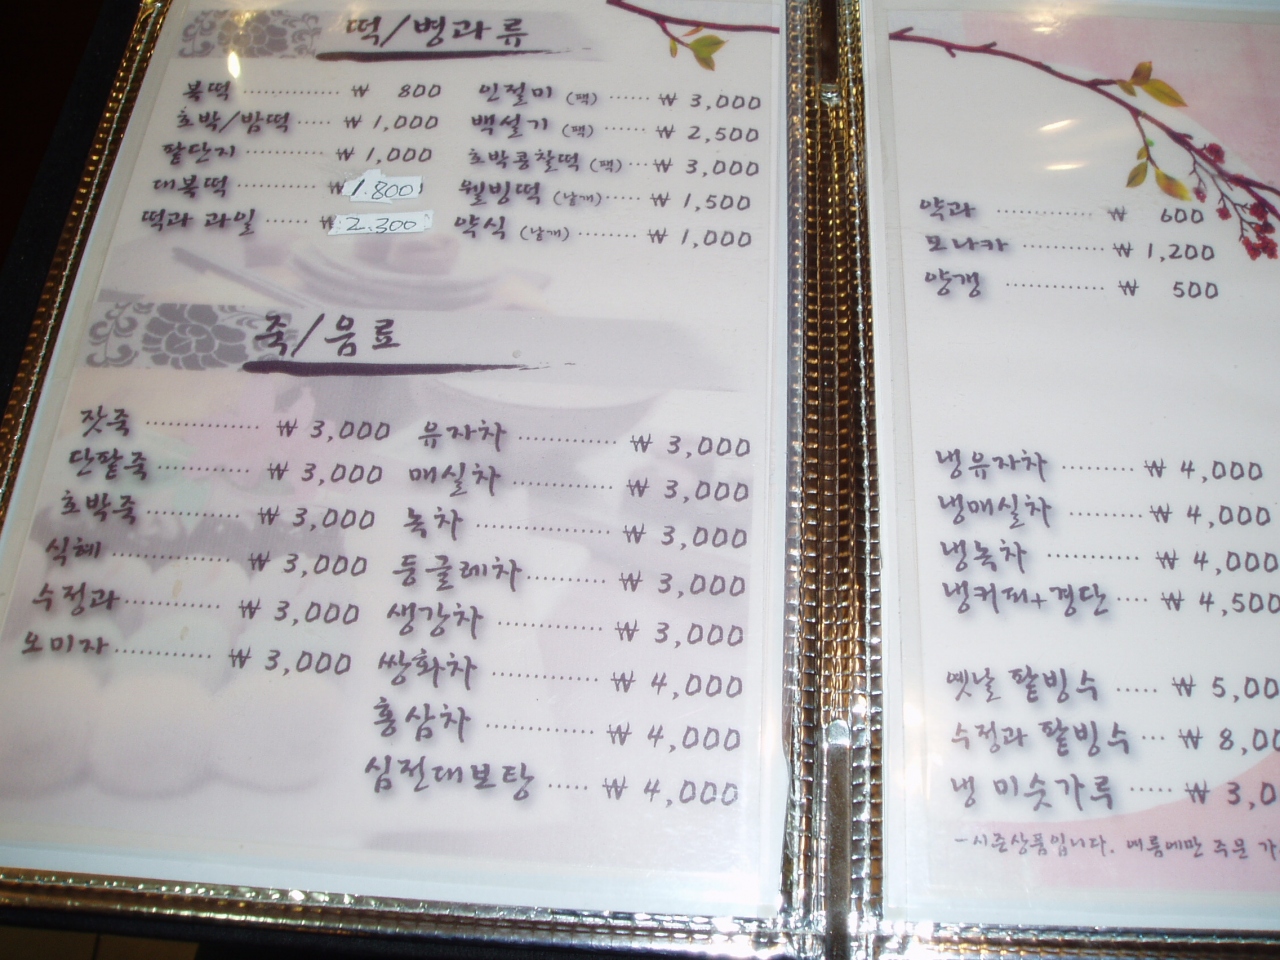 떡/병과류
복떡 ············ ₩ 800
호박/밤떡 ····· ₩ 1,000
팥단지 ·········· ₩ 1,000
대복떡 ·········· ₩ 1.800
떡과 과일 ······ ₩ 2.300
인절미 (팩) ······ ₩ 3,000
백설기 (팩) ······ ₩ 2,500
호박콩찰떡 (팩) ··· ₩ 3,000
웰빙떡 (낱개) ····· ₩ 1,500
약식 (낱개) ········ ₩ 1,000
죽/음료
잣죽 ·············· ₩ 3,000
단팥죽 ··········· ₩ 3,000
호박죽 ············ ₩ 3,000
식혜 ·············· ₩ 3,000
수정과 ············ ₩ 3,000
오미자 ············ ₩ 3,000
유자차 ············ ₩ 3,000
매실차 ············ ₩ 3,000
녹차 ··············· ₩ 3,000
둥글레차 ········· ₩ 3,000
생강차 ············ ₩ 3,000
쌍화차 ············ ₩ 4,000
홍삼차 ············ ₩ 4,000
십전대보탕 ····· ₩ 4,000
약과 ············ ₩ 600
모나카 ·········· ₩ 1,200
양갱 ············ ₩ 500
냉유자차 ········ ₩ 4,000
냉매실차 ········ ₩ 4,000
냉녹차 ·········· ₩ 4,000
냉커피+경단 ···· ₩ 4,500
옛날 팥빙수 ····· ₩ 5,00
수정과 팥빙수 ··· ₩ 8,00
냉 미숫가루 ···· ₩ 3,0
-시즌상품입니다. 여름에만 주문 가